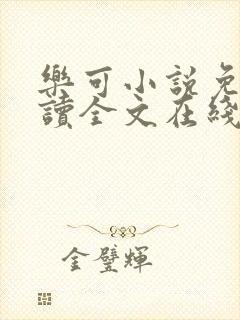 樂可小說免
讀全文在綫
金璧輝